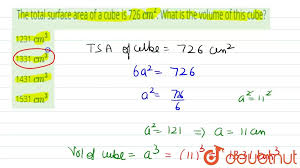 The total surface area of a cube is 726 cm². What is the volume of this cube?
1231 cm³
1331 cm³
1431 cm³
1531 cm³
TSA of cube = 726 cm²
6a² = 726
a² = 726/6
a² = 11²
a² = 121 ⇒ a = 11 cm
Vol of cube = a³ = (11)³ = 1331 cm³
doubtnut